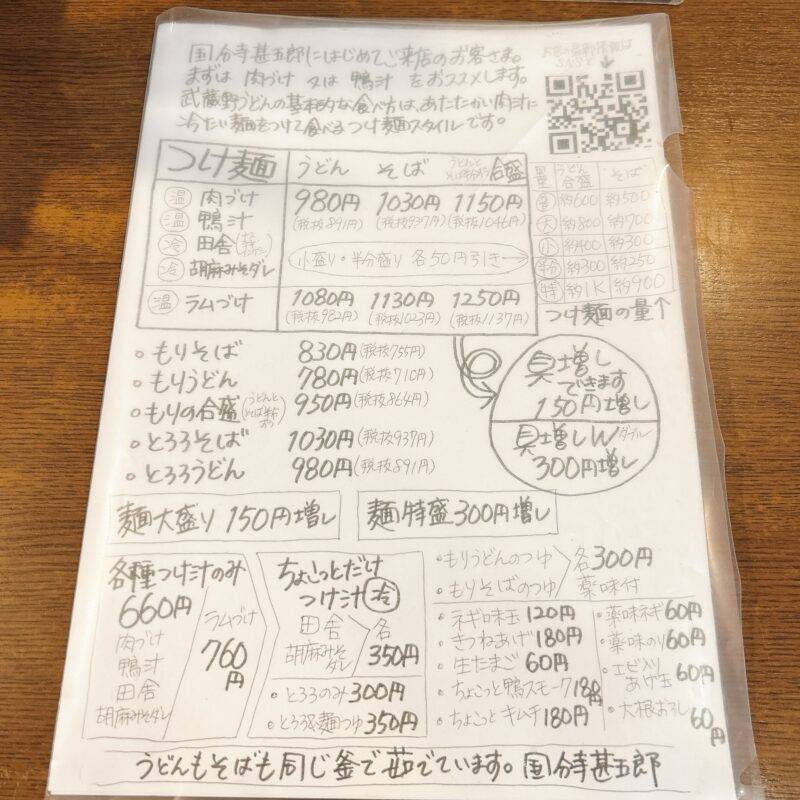 国分寺甚五郎にはじめてご来店のお客さま。
まずは 肉づけ 又は 鴨汁 をおススメします。
武蔵野うどんの基本的な食べ方は、あたたかい肉汁に
冷たい麺をつけて食べるつけ麺スタイルです。
お店の最新情報は
SNSで
つけ麺 うどん そば うどんとそば半分ずつ 合盛
温 肉づけ 980円 1030円 1150円
温 鴨汁 (税抜891円) (税抜937円) (税抜1046円)
冷 田舎
冷 胡麻みそダレ 小盛り・半分盛り 各50円引き→
温 ラムづけ 1080円 1130円 1250円
(税抜982円) (税抜1023円) (税抜1137円)
量 うどん合盛 そば
普 約600 約500
大 約800 約700
小 約400 約300
半分 約300 約250
特 約1K 約900
つけ麺の量↑
・もりそば 830円(税抜755円)
・もりうどん 780円(税抜710円)
・もりの合盛(うどんとそば半分ずつ) 950円(税抜864円)
・とろろそば 1030円(税抜937円)
・とろろうどん 980円(税抜891円)
具増し
できます
150円増し
具増しW ダブル
300円増し
麺大盛り 150円増し
麺特盛300円増し
各種つけ汁のみ
660円
肉づけ
鴨汁
田舎
胡麻みそダレ
ラムづけ
760円
ちょこっとだけ
つけ汁 冷
田舎
胡麻みそダレ
各350円
・とろろのみ 300円
・とろろ&麺つゆ 350円
・もりうどんのつゆ
・もりそばのつゆ
各300円
薬味付
・ネギ 味玉 120円
・きつねあげ 180円
・生たまご 60円
・ちょこっと鴨スモーク 180円
・ちょこっとキムチ 180円
・薬味ネギ 60円
・薬味のり 60円
・エビ入りあげ玉 60円
・大根おろし 60円
うどんもそばも同じ釜で茹でています。国分寺甚五郎